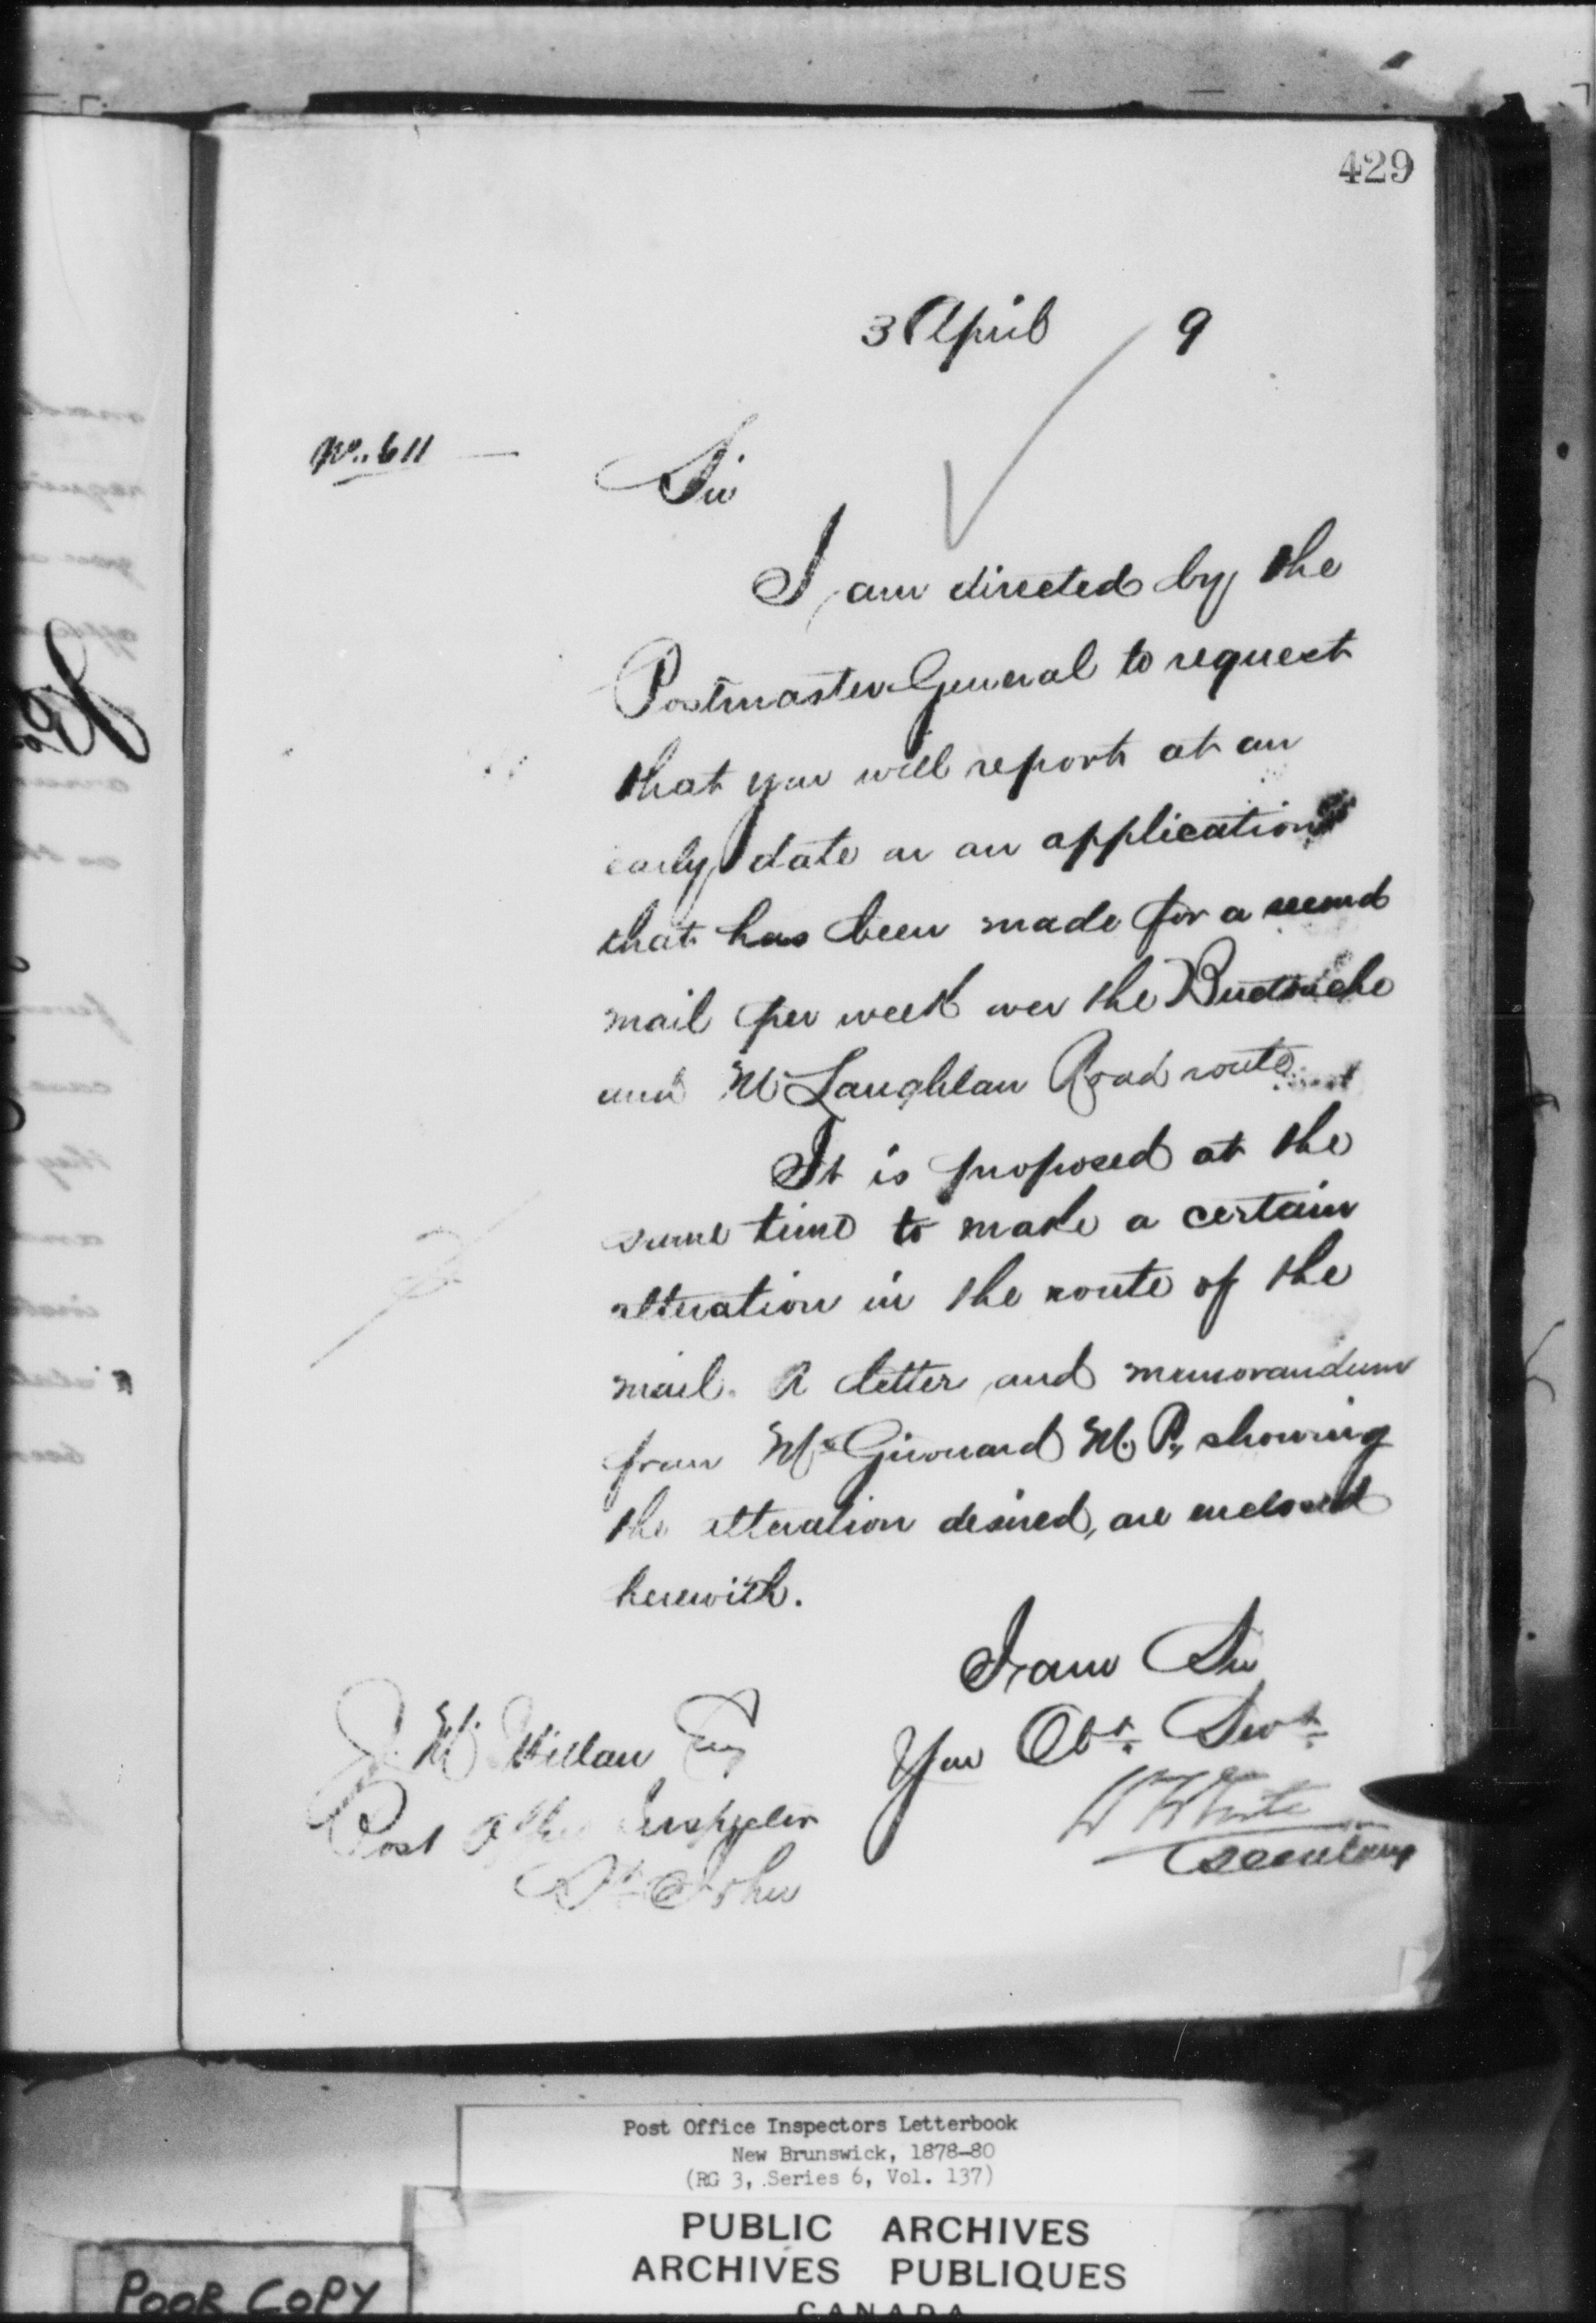 429
3 April 9
No. 611 —
Sir
I am directed by the
Postmaster General to request
that you will report at an
early date on an application
that has been made for a second
mail per week over the Buctouche
and McLaughlan Road route.
It is proposed at the
same time to make a certain
alteration in the route of the
mail. A letter and memorandum
from Mr Girouard M.P., showing
the alteration desired, are enclosed
herewith.
I am Sir
Your Obt. Servt.
W White
Secretary
J. McMillan Esq
Post Office Inspector
St John
Post Office Inspectors Letterbook
New Brunswick, 1878-80
(RG 3, Series 6, Vol. 137)
PUBLIC ARCHIVES
ARCHIVES PUBLIQUES
CANADA
POOR COPY